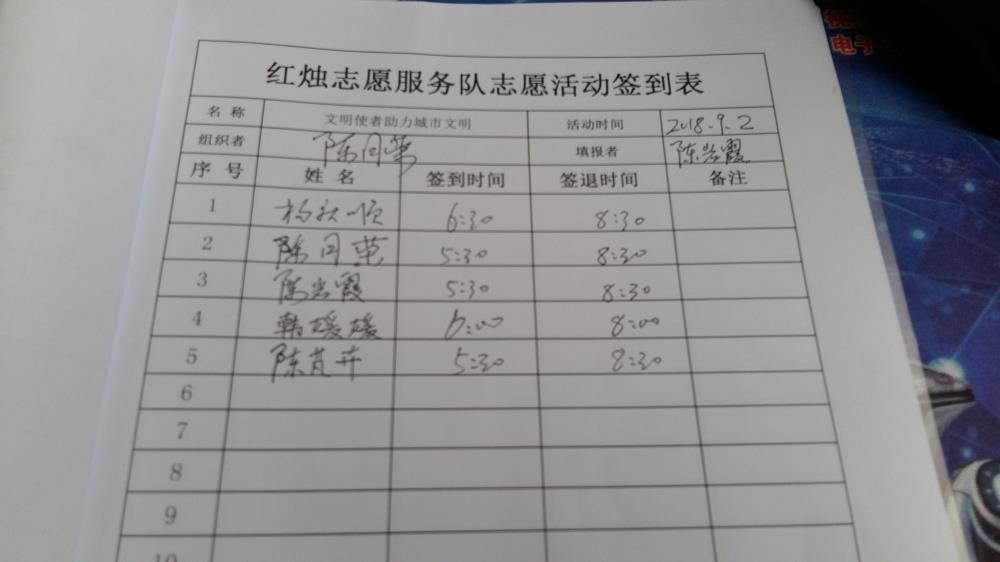 红烛志愿服务队志愿活动签到表
名 称 文明使者助力城市文明 活动时间 2018.9.2
组织者 陈月荣 填报者 陈岩霞
序 号 姓 名 签到时间 签退时间 备注
1 杨秋顺 6:30 8:30
2 陈月荣 5:30 8:30
3 陈岩霞 5:30 8:30
4 韩媛媛 6:00 8:00
5 陈芃卉 5:30 8:30
6
7
8
9
10
电子